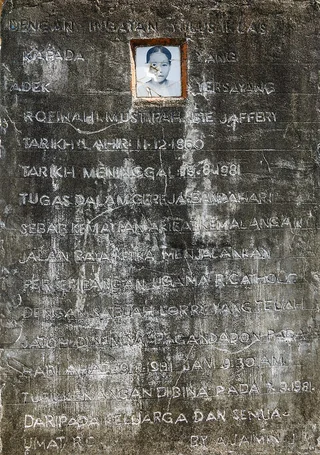 DENGAN INGATAN TULUS IKLAS
KAPADA YANG
ADEK TERSAYANG
ROFINAH MUSTIPAH BTE JAFFERY
TARIKH LAHIR 11-12-1960
TARIKH MENINGGAL 8-1981
TUGAS DALAM GEREJA BENDAHARI
SEBAB KEMATIAN AKIBAT KEMALANGAN
JALAN RAYA KETIKA MENJALANKAN
UGAMA R. CATHOLIC
DENGAN SEBUAH LORRY YANG TELAH
JATUH DI SENINDAL PAGANDABON PADA
HARI AHAD 1981 JAM 9.30 AM
TUGU KENANGAN DIBINA PADA 1981
DARIPADA KELUARGA DAN SEMUA
UMAT R.C BY AJAIMIN J